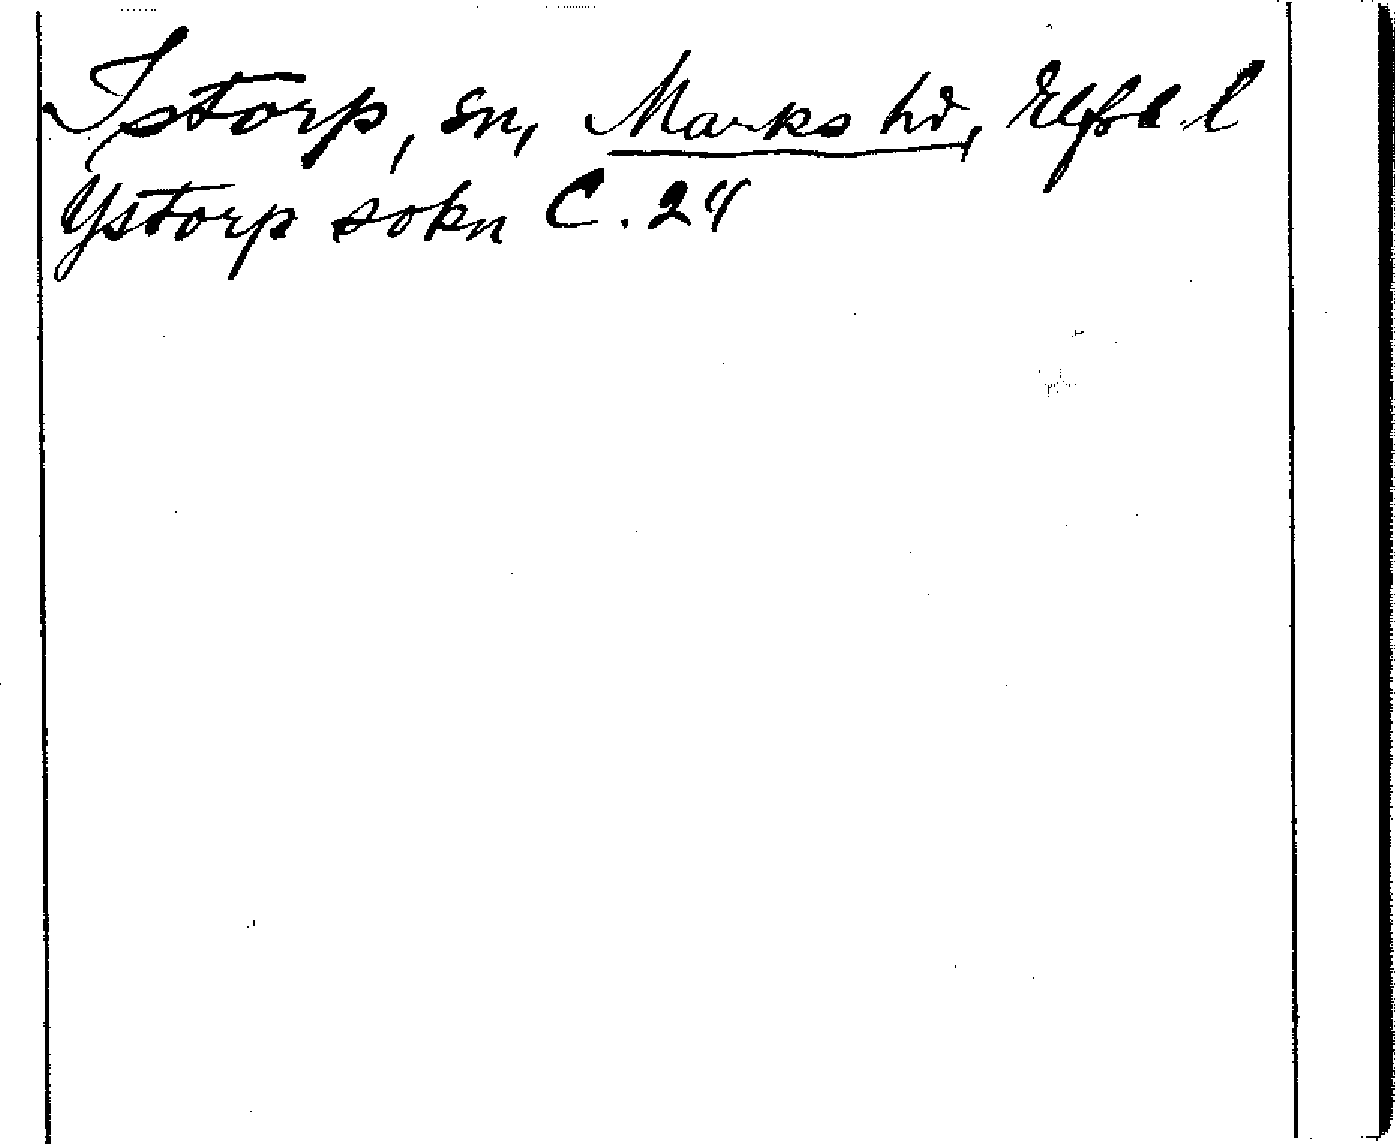 Istorp, sn, Marks hd, Elfsb l
Ystorp sokn C. 24